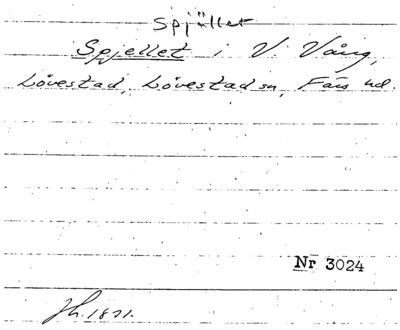 Spjället
Spjellet i V. Vång,
Lövestad, Lövestad sn, Färs hd.
Nr 3024
Jh. 1871.